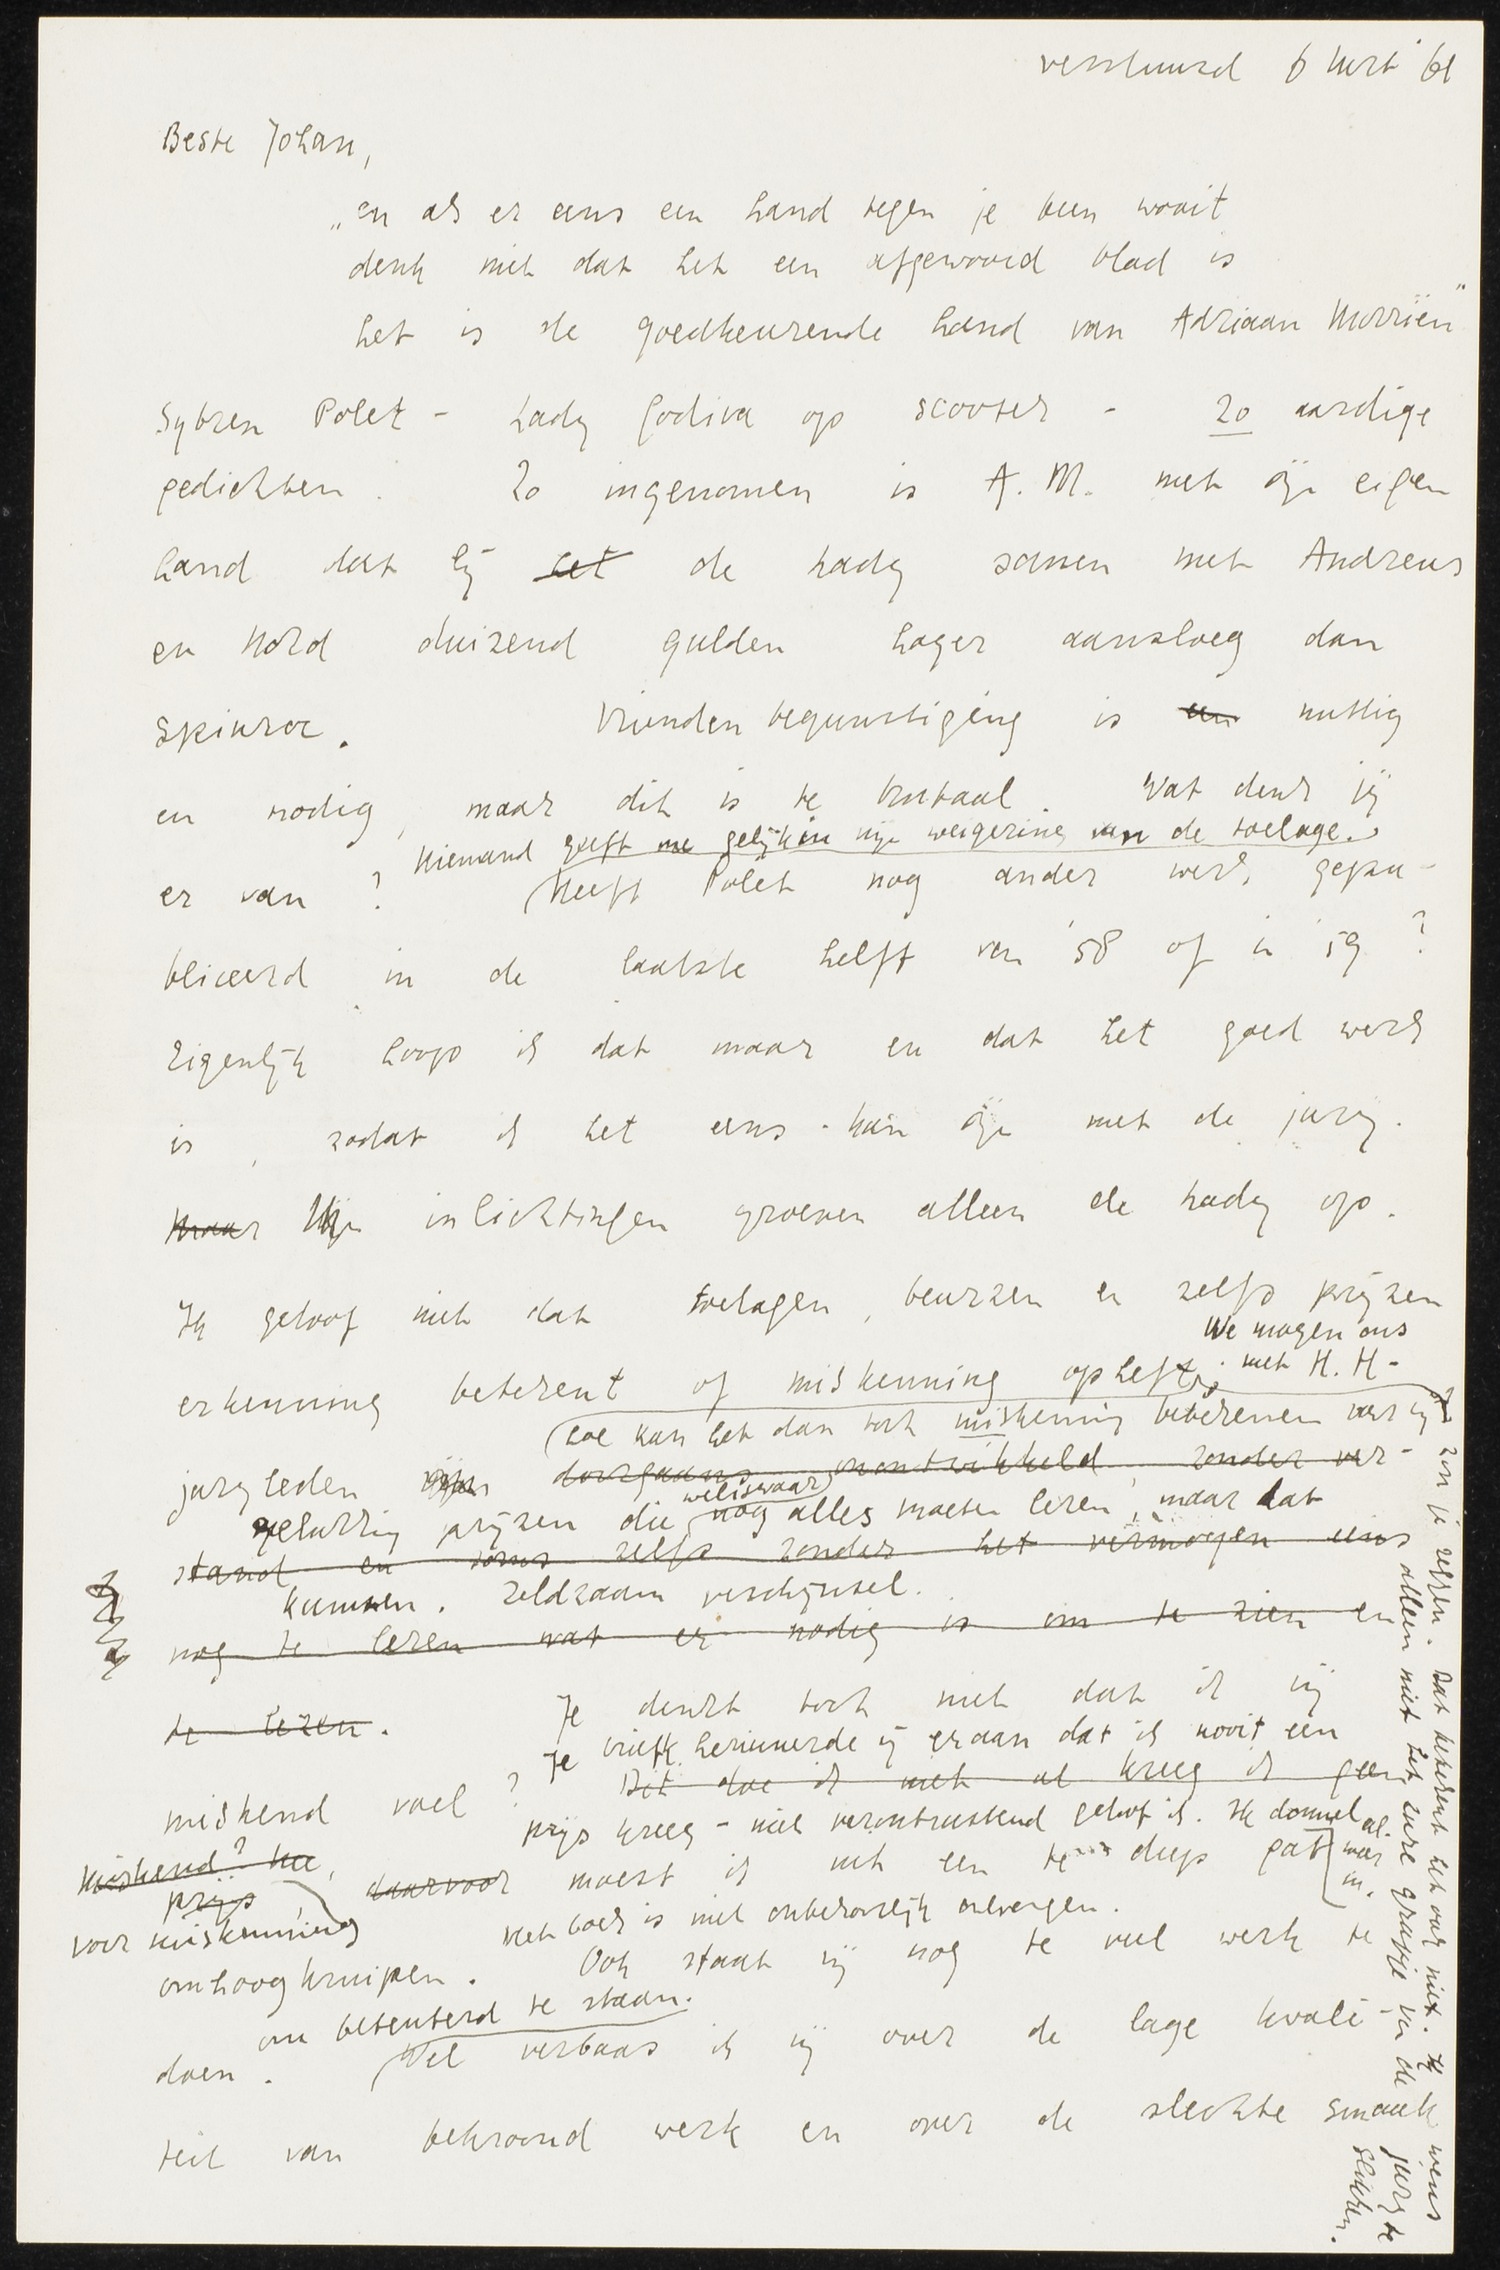 verstuurd 6 mrt '61
Beste Johan,
„en als er eens een hand tegen je been waait
denk niet dat het een afgewaaid blad is
het is de goedkeurende hand van Adriaan Morriën”
Sybren Polet - Lady Godiva op scooter - 20 aardige
gedichten. Zo ingenomen is A. M. met zijn eigen
hand dat hij het de Lady samen met Andreus
en Nord duizend gulden hoger aansloeg dan
Skiwra.
Vriendenbegunstiging is een nuttig
en nodig, maar dit is te brutaal. Wat denk jij
Niemand geeft me gelijk in mijn weigering van de toelage.
er van? Heeft Polet nog ander werk gepu-
bliceerd in de laatste helft van '58 of in '59?
Eigenlijk hoop ik dat maar en dat het goed werk
is, zodat ik het eens kan zijn met de jury.
Maar Mijn inlichtingen groeven alleen de Lady op.
Ik geloof niet dat toelagen, beurzen en zelfs prijzen
We mogen ons
erkenning betekent of miskenning opheft; met H. H-
hoe kan het dan toch miskenning betekenen
juryleden zijn doorgaans onontwikkeld zonder ver-
gelukkig prijzen die weliswaar nog alles moeten leren, maar dat
stand en soms zelfs zonder het vermogen eens
kunnen. Zeldzaam verschijnsel.
nog te leren wat er nodig is om te zien en
te lezen.
Je denkt toch niet dat ik mij
Je brief herinnerde mij eraan dat ik nooit een
miskend voel? Dit doe ik niet al kreeg ik geen
prijs kreeg - niet verontrustend geloof ik. Ik dommel al
weer in.
Miskend? Nee, daarvoor moest ik uit een te diep gat
prijs
voor miskenning
Het boek is niet onberoerlijk ontvangen.
omhoog kruipen. Ook staat mij nog te veel werk te
om beteuterd te staan.
doen. Wel verbaas ik mij over de lage kwali-
teit van bekroond werk en over de slechte smaak
zou je zeggen. Dat betekent het ook niet. Ik wens
alleen niet het zure grapje van de jury te
slikken.